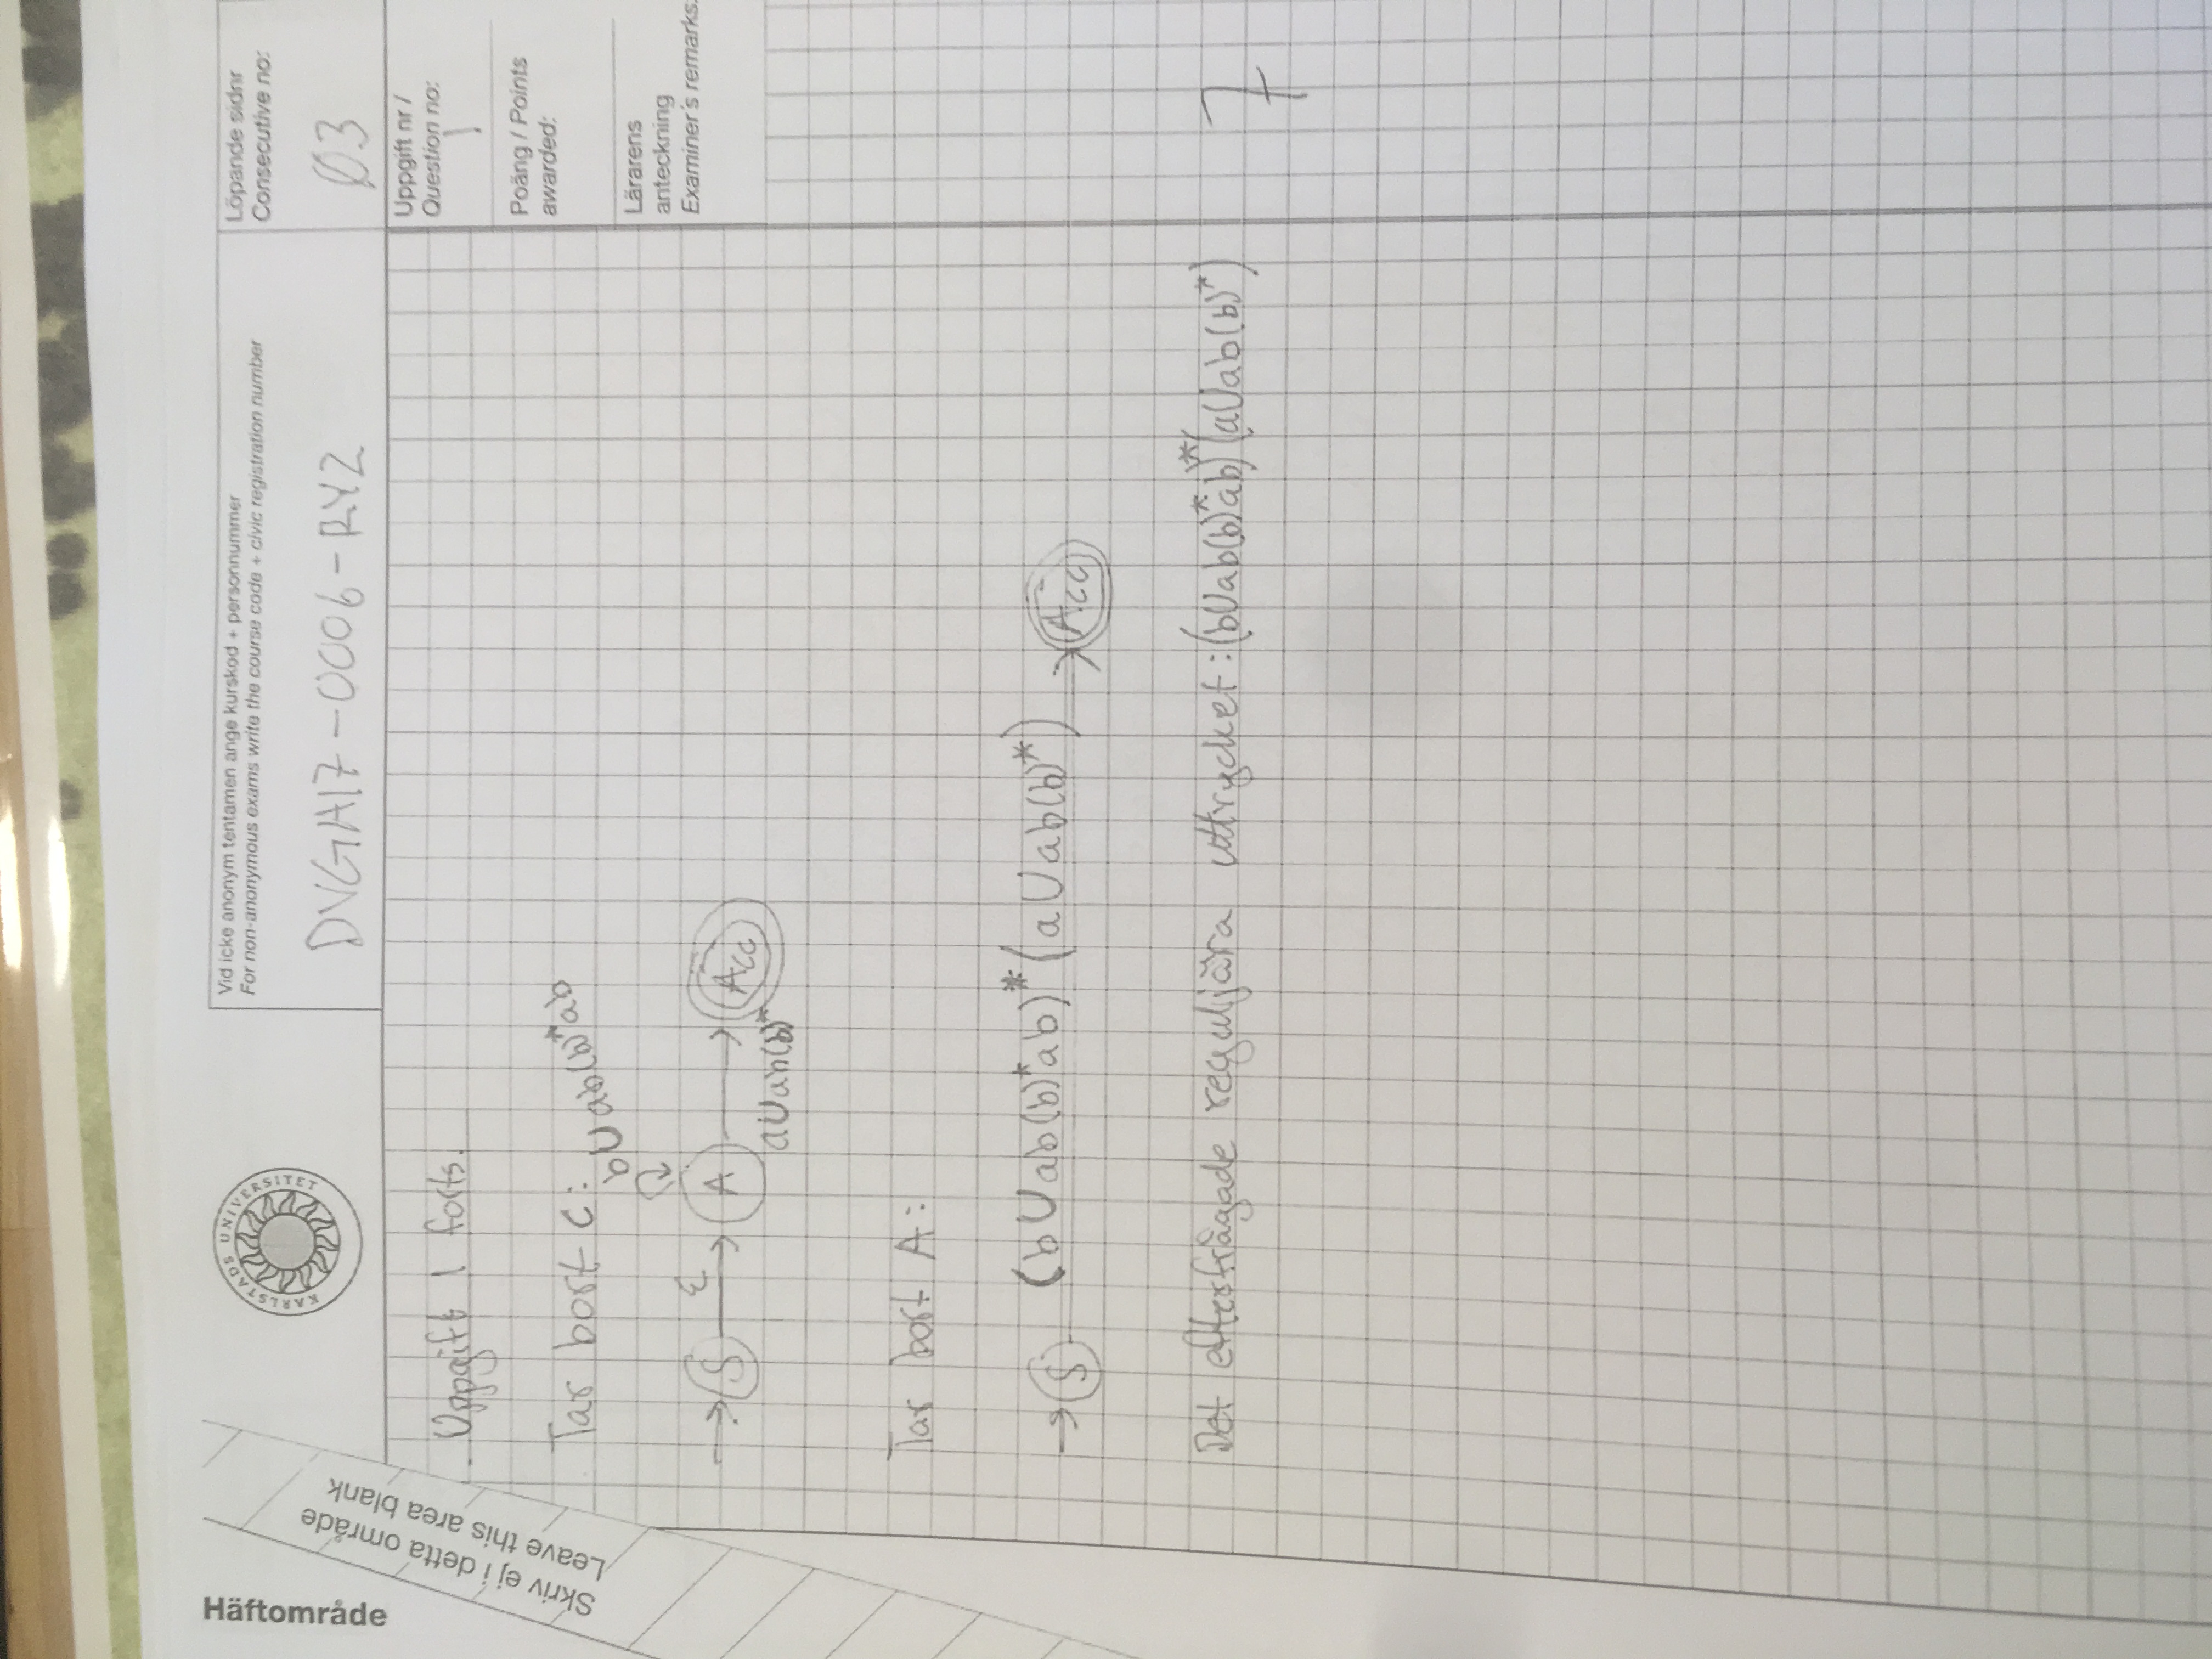 Häftområde
Skriv ej i detta område
Leave this area blank
KARLSTADS UNIVERSITET
Vid icke anonym tentamen ange kurskod + personnummer
For non-anonymous exams write the course code + civic registration number
DVGA17-0006-RYZ
Löpande sidnr
Consecutive no:
Ø3
Uppgift nr /
Question no:
1
Poäng / Points
awarded:
Lärarens
anteckning
Examiner's remarks:
Uppgift 1 forts.
Tar bort C:
b∪ab(b)*ab
S ε A Acc
a∪ab(b)*
Tar bort A:
S (b∪ab(b)*ab)*(a∪ab(b)*) Acc
Det efterfrågade reguljära uttrycket: (b∪ab(b)*ab)*(a∪ab(b)*)
7